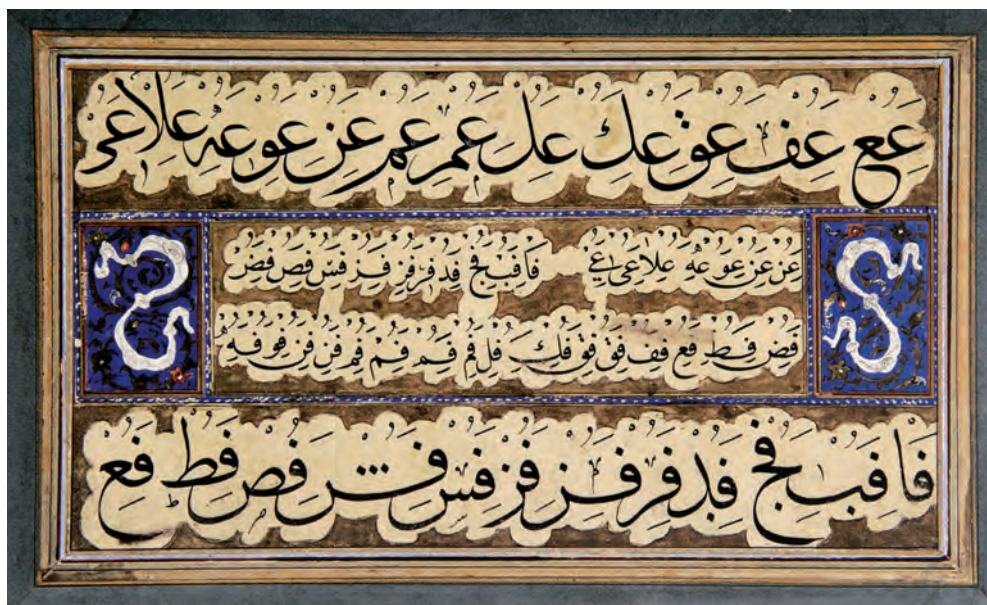 عع عف عق عك عل عم عم عن عو عه علا عى
عن عن عن عو عه علا عى عے فا فب فج فد فر فر فر فس فص فض
فض فط فع فف فق فق فك فل فم فم فم فم فن فن فو فه
فا فب فج فد فر فر فر فس فس فص فط فع